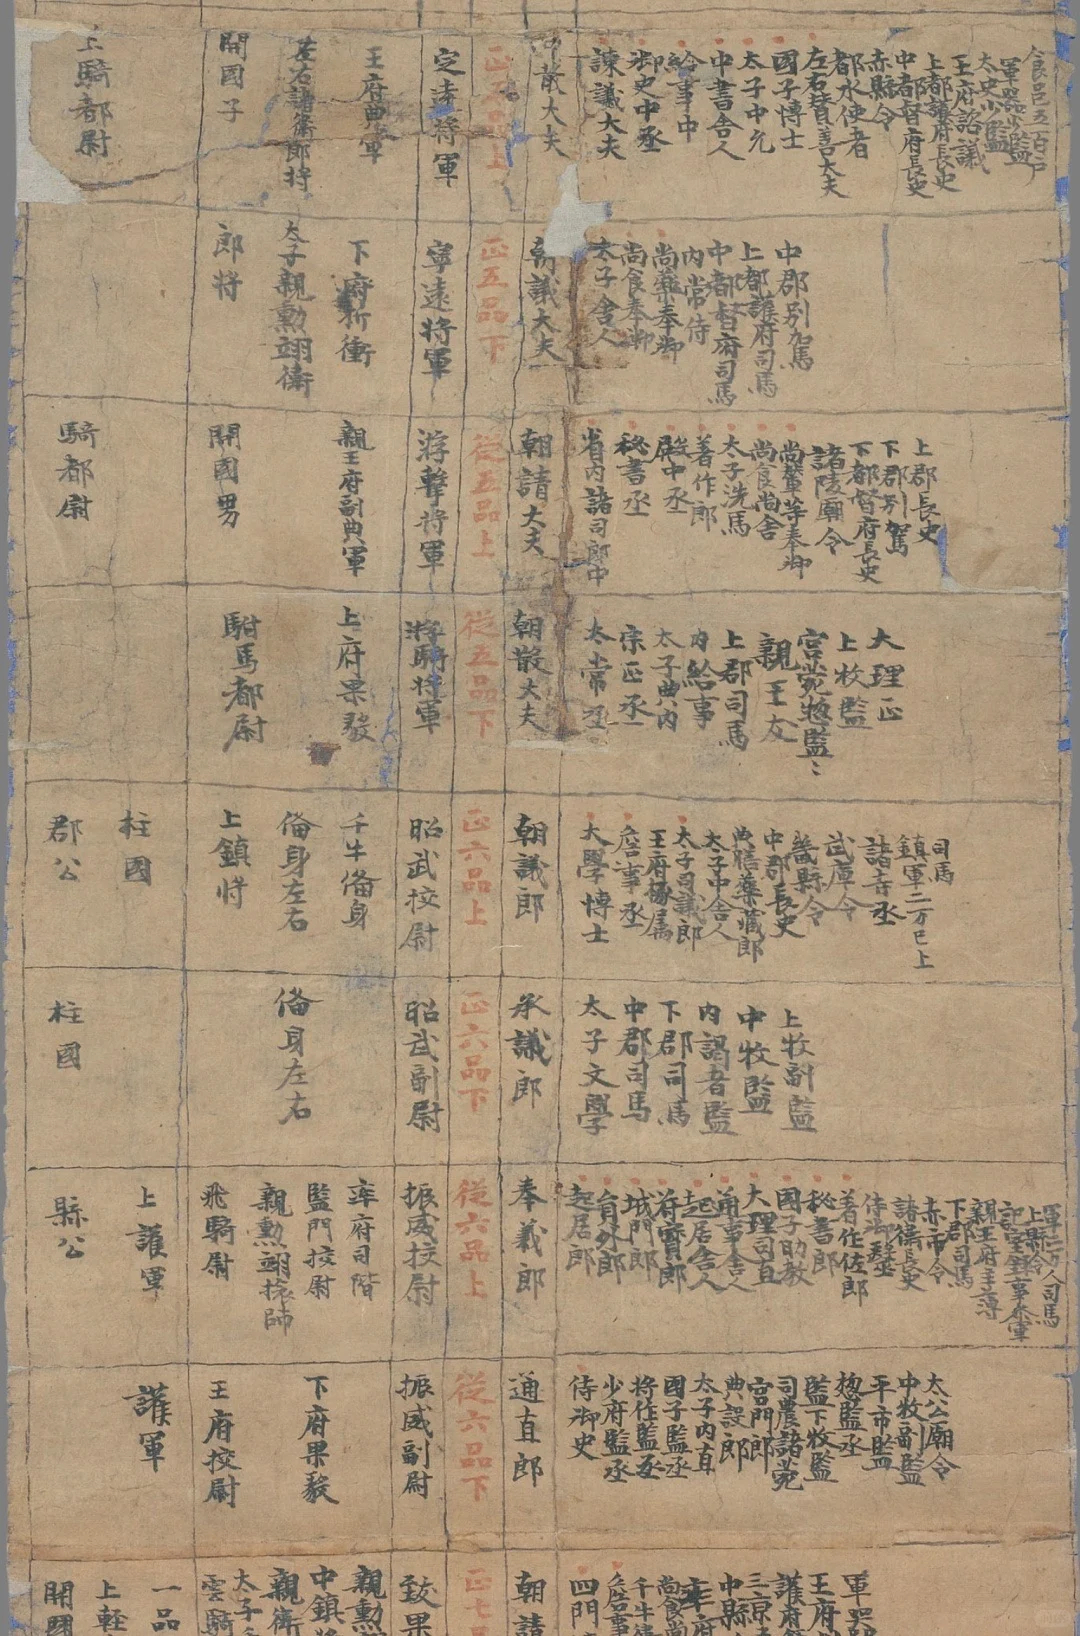 上騎都尉
開國子
左右諸衛郎將
王府典軍
定遠將軍
正五品上
散大夫
諫議大夫
御史中丞
給事中
中書舍人
太子中允
國子博士
左右贊善大夫
都水使者
赤縣令
中都督府長史
上都護府長史
王府諮議
太史少監
軍器少監
食邑五百戶
郎將
太子親勳翊衛
下府折衝
寧遠將軍
正五品下
朝議大夫
太子舍人
尚食奉御
尚藥奉御
內常侍
中都督府司馬
上都護府司馬
中郡別駕
騎都尉
開國男
親王府副典軍
游擊將軍
從五品上
朝請大夫
省內諸司郎中
秘書丞
殿中丞
著作郎
太子洗馬
尚食尚舍
尚輦等奉御
諸陵廟令
下都督府長史
下郡別駕
上郡長史
駙馬都尉
上府果毅
游騎將軍
從五品下
朝散大夫
太常丞
宗正丞
太子典內
內給事
上郡司馬
親王友
宮苑揔監
上牧監
大理正
郡公
柱國
上鎮將
俻身左右
千牛俻身
昭武校尉
正六品上
朝議郎
大學博士
詹事丞
王府掾属
太子司議郎
太子中舍人
典膳藥藏郎
中郡長史
畿縣令
武庫令
諸寺丞
鎮軍二万已上
司馬
柱國
俻身左右
昭武副尉
正六品下
承議郎
太子文學
中郡司馬
下郡司馬
內謁者監
中牧監
上牧副監
縣公
上護軍
飛騎尉
親勳翊旅帥
監門校尉
率府司階
振威校尉
從六品上
奉義郎
起居郎
員外郎
城門郎
符寶郎
起居舍人
通事舍人
大理司直
國子助教
秘書郎
著作佐郎
諸衛長史
赤市令
下郡司馬
親王府主簿
記室錄事參軍
上縣令
軍二万人司馬
護軍
王府校尉
下府果毅
振威副尉
從六品下
通直郎
侍御史
少府監丞
將作監丞
國子監丞
太子內直
典設郎
宮門郎
司農諸苑
監下牧監
揔監丞
平市監
中牧副監
太公廟令
開國
上軽
一品
雲騎
太子
親衛
中鎮
親勳
致果
正七
朝請
四門
詹事
千牛
尚食
率府
中縣
三京
護府
王府
軍器